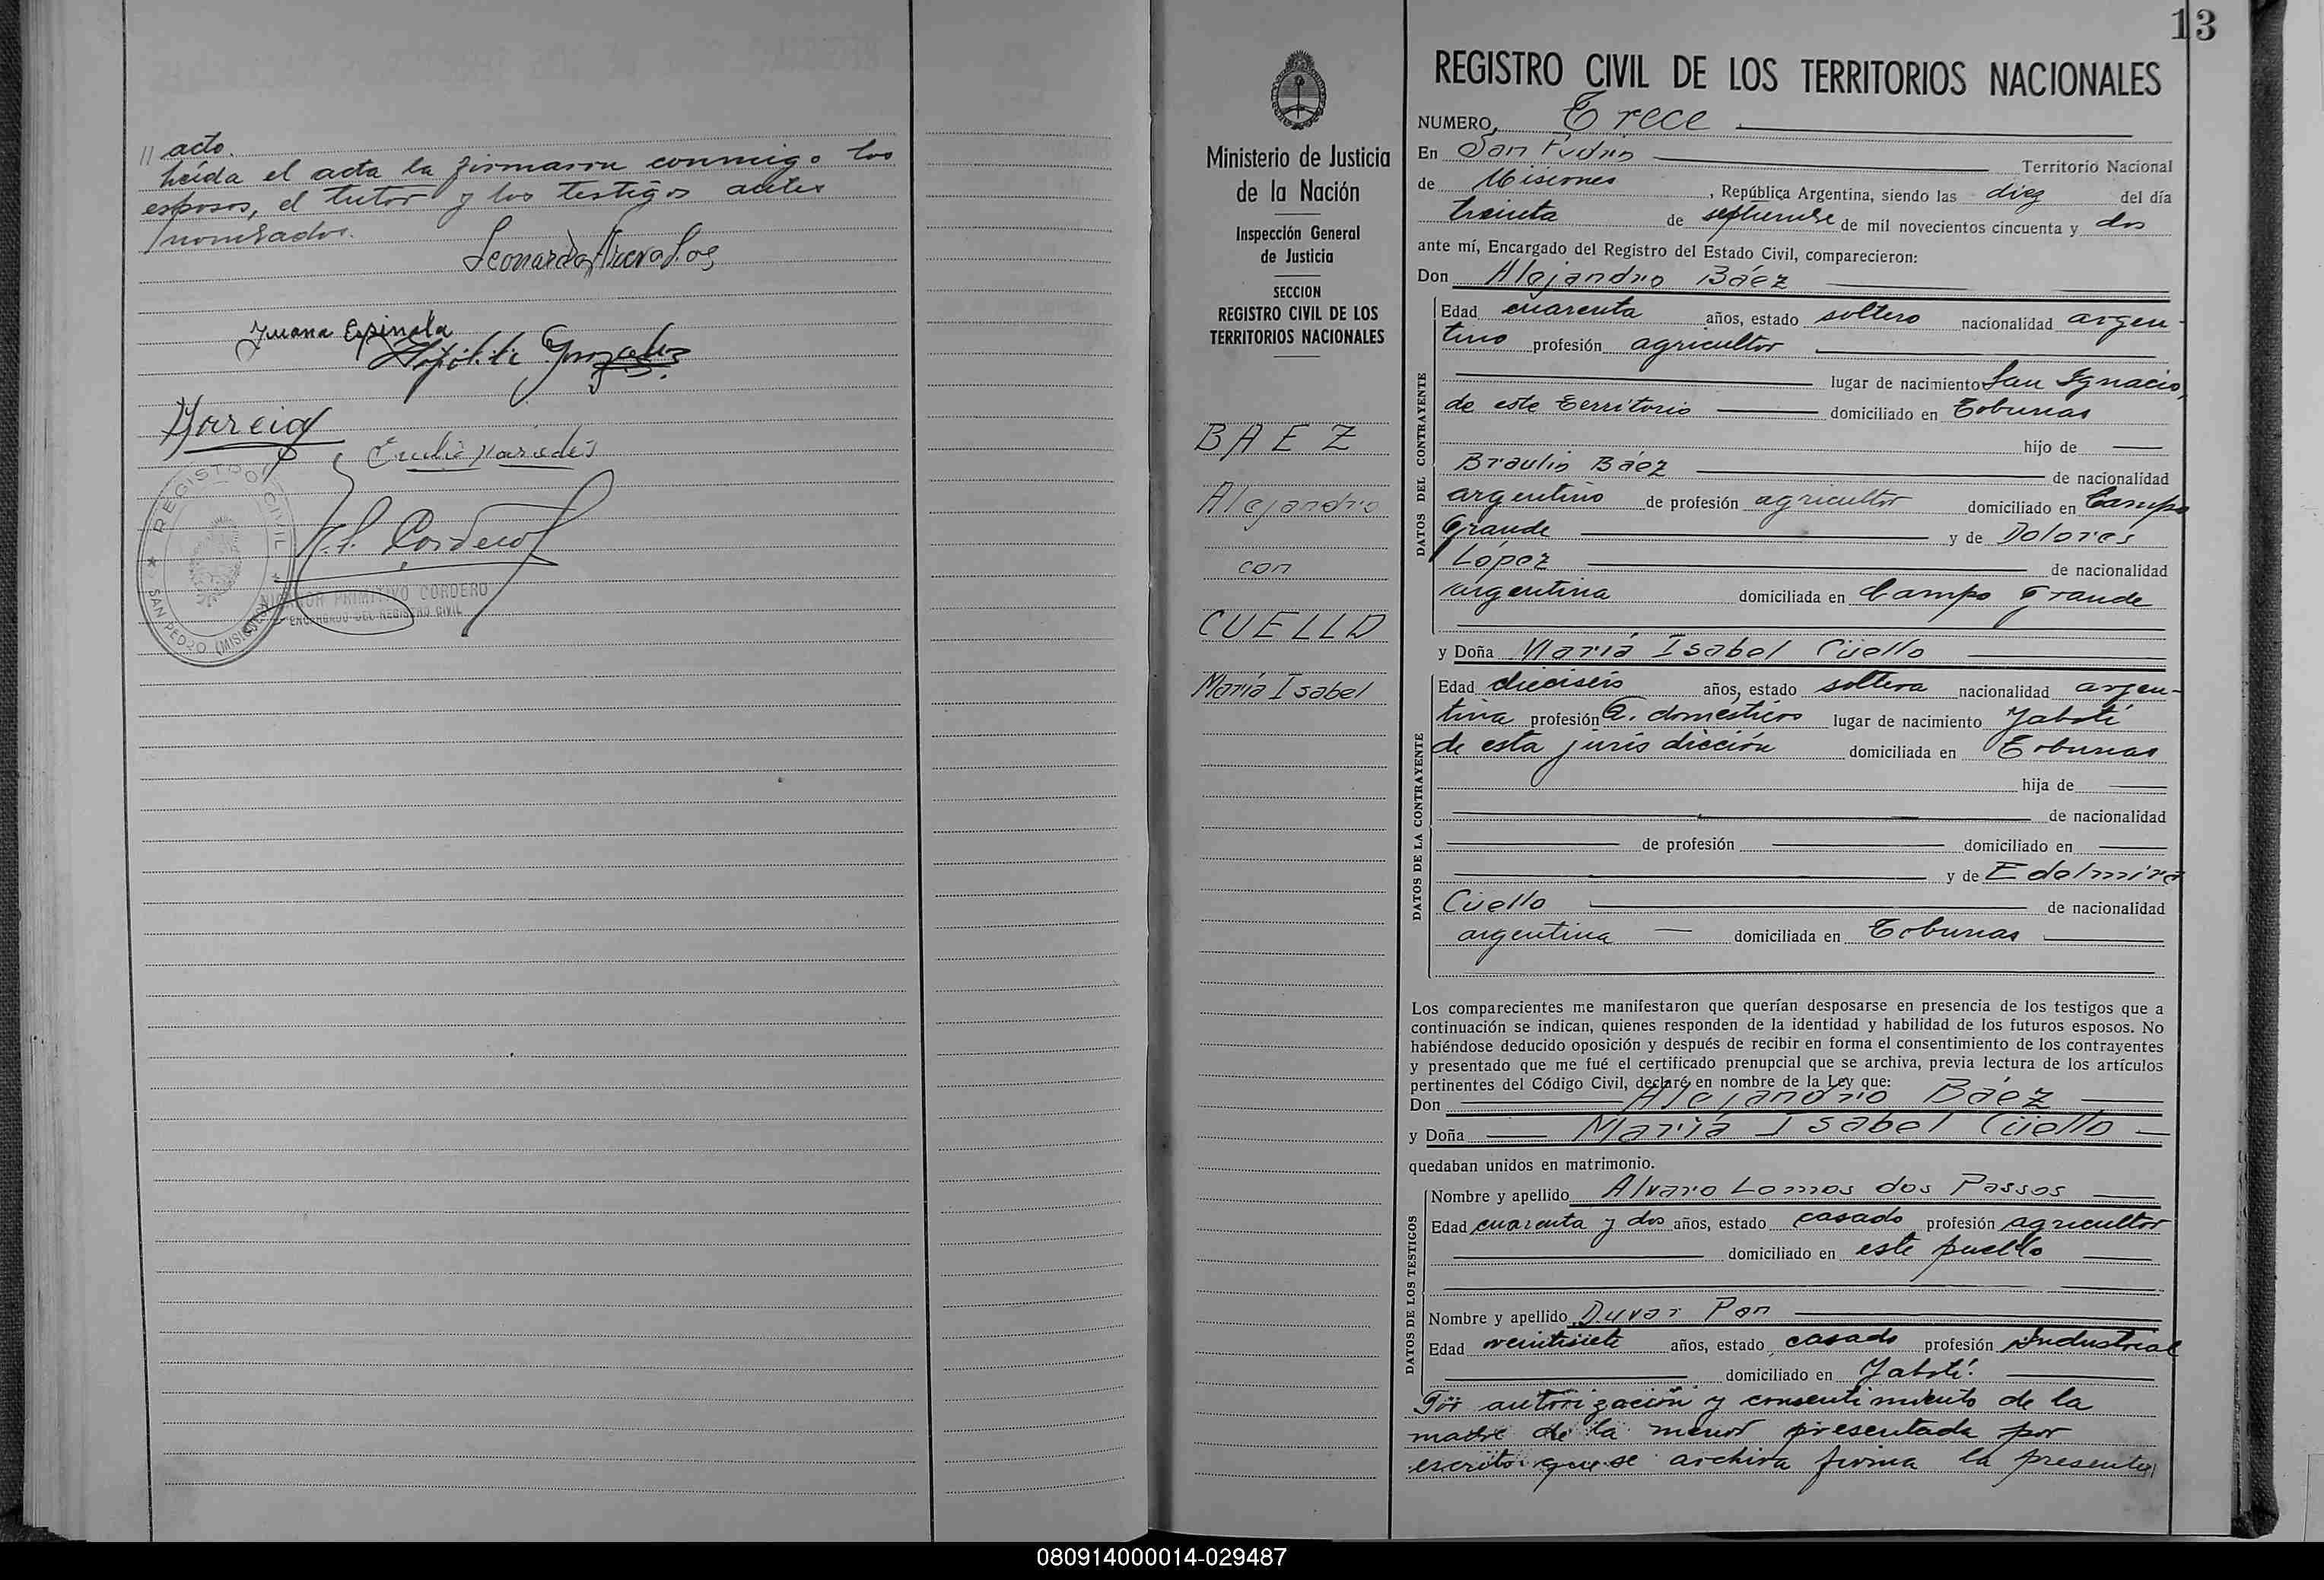 // acto.
Leída el acta la firmaron conmigo los
esposos, el tutor y los testigos antes
nombrados.
Leonarda Arevalos
Juana Espinola
Hipólito Gonzalez
Emilio Paredes
REGISTRO CIVIL
SAN PEDRO (MISIONES)
N. P. Cordero
NICANOR PRIMITIVO CORDERO
ENCARGADO DEL REGISTRO CIVIL
13
Ministerio de Justicia
de la Nación
Inspección General
de Justicia
SECCION
REGISTRO CIVIL DE LOS
TERRITORIOS NACIONALES
BAEZ
Alejandro
con
CUELLO
María Isabel
REGISTRO CIVIL DE LOS TERRITORIOS NACIONALES
NUMERO Trece
En San Pedro Territorio Nacional
de Misiones, República Argentina, siendo las diez del día
treinta de septiembre de mil novecientos cincuenta y dos
ante mí, Encargado del Registro del Estado Civil, comparecieron:
Don Alejandro Báez
DATOS DEL CONTRAYENTE
Edad cuarenta años, estado soltero nacionalidad argen-
tino profesión agricultor
lugar de nacimiento San Ignacio,
de este territorio domiciliado en Tobunas
hijo de
Braulio Báez de nacionalidad
argentino de profesión agricultor domiciliado en Campo
Grande y de Dolores
López de nacionalidad
argentina domiciliada en Campo Grande
y Doña María Isabel Cüello
DATOS DE LA CONTRAYENTE
Edad dieciseis años, estado soltera nacionalidad argen-
tina profesión Q. domésticos lugar de nacimiento Yabotí
de esta jurisdicción domiciliada en Tobunas
hija de
de nacionalidad
de profesión domiciliado en
y de Edelmira
Cüello de nacionalidad
argentina domiciliada en Tobunas
Los comparecientes me manifestaron que querían desposarse en presencia de los testigos que a
continuación se indican, quienes responden de la identidad y habilidad de los futuros esposos. No
habiéndose deducido oposición y después de recibir en forma el consentimiento de los contrayentes
y presentado que me fué el certificado prenupcial que se archiva, previa lectura de los artículos
pertinentes del Código Civil, declaré en nombre de la Ley que:
Don Alejandro Báez
y Doña María Isabel Cüello
quedaban unidos en matrimonio.
DATOS DE LOS TESTIGOS
Nombre y apellido Alvaro Lemos dos Passos
Edad cuarenta y dos años, estado casado profesión agricultor
domiciliado en este pueblo
Nombre y apellido Duvar Pan
Edad veintisiete años, estado casado profesión Industrial
domiciliado en Yabotí.
Por autorización y consentimiento de la
madre de la menor presentada por
escrito que se archiva firma la presente//
080914000014-029487